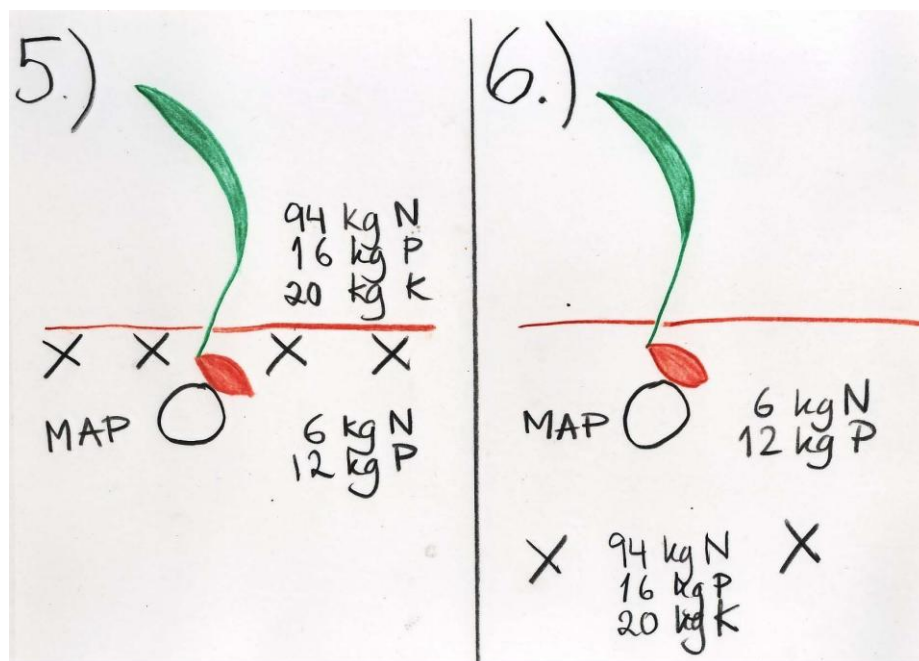 5.)
94 kg N
16 kg P
20 kg K
X X X X
MAP
6 kg N
12 kg P
6.)
MAP
6 kg N
12 kg P
X X
94 kg N
16 kg P
20 kg K